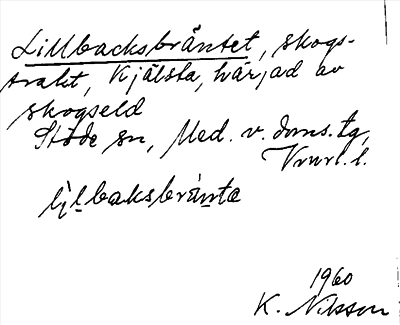 Lillbacksbräntet, skogs-
trakt, Kjälsta, härjad av
skogseld
Stöde sn, Med. v. doms. tg,
Vnrl. l.
lilbaksbränta
1960
K. Nilsson